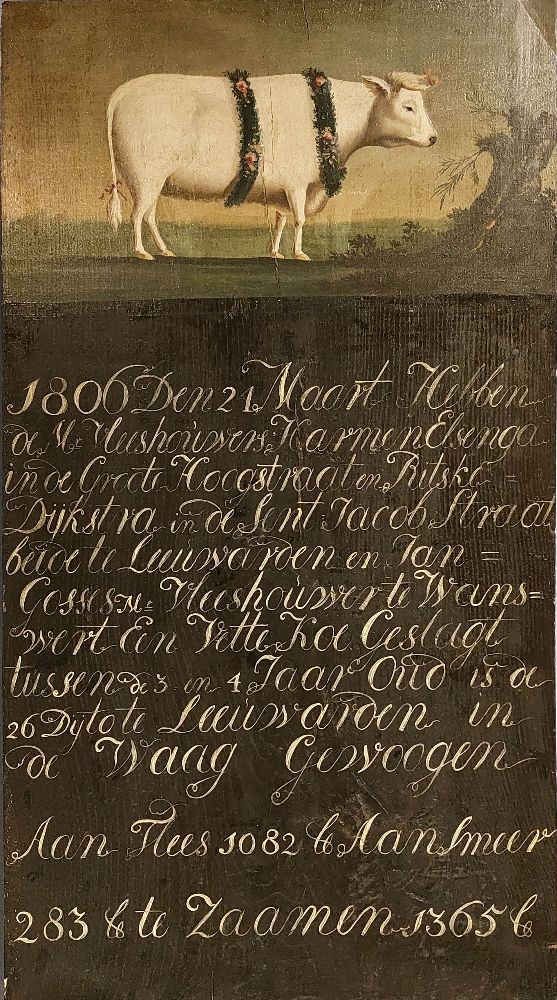 1806 Den 21 Maart Hebben
de Mr Vleeshouwers Harmen Elsenga
in de Groote Hoogstraat en Ritske =
Dijkstra in de Sent Jacob Straat
beide te Leeuwarden en Jan =
Gosses Mr Vleeshouwer te Wans=
wert Een Vette Koe Geslagt
tussen de 3 en 4 Jaar Oud is de
26 Dyto te Leeuwarden in
de Waag Gewoogen
Aan Vlees 1082 ℔ Aan Smeer
283 ℔ te Zaamen 1365 ℔